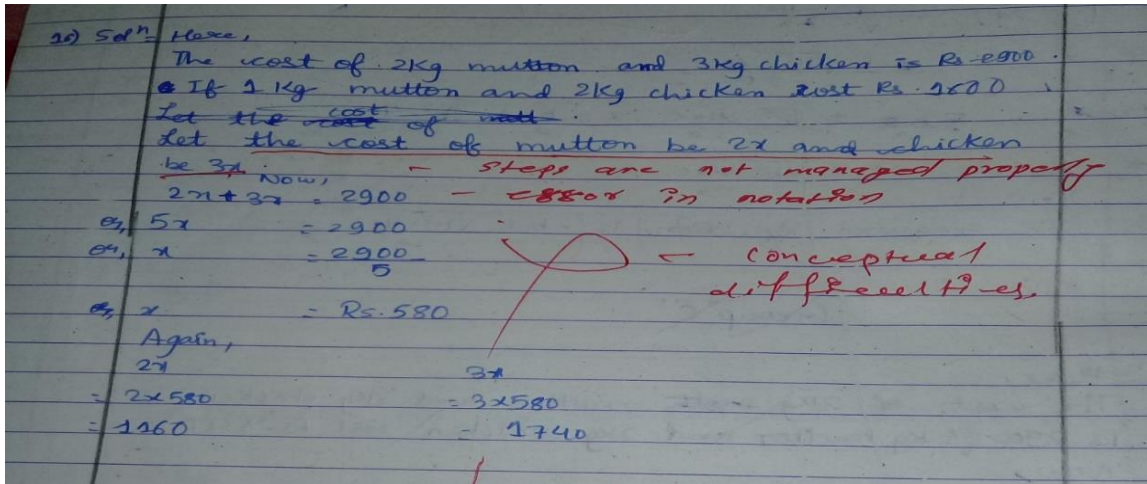 10) Solⁿ= Here,
The cost of 2Kg mutton and 3Kg chicken is Rs 2900.
If 1 Kg mutton and 2Kg chicken cost Rs. 1600
Let the cost of
Let the cost of mutton be 2x and chicken
be 3x. - Steps are not managed properly
Now,
2x + 3x = 2900 - error in notation
or, 5x = 2900
or, x = 2900/5 - conceptual
difficulties.
or, x = Rs. 580
Again,
2x 3x
= 2x580 = 3x580
= 1160 = 1740